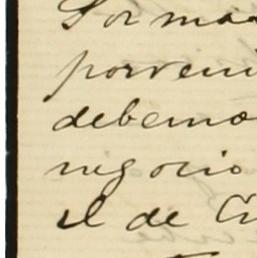 Por ma
porveni
debemo
negocio
el de Cu